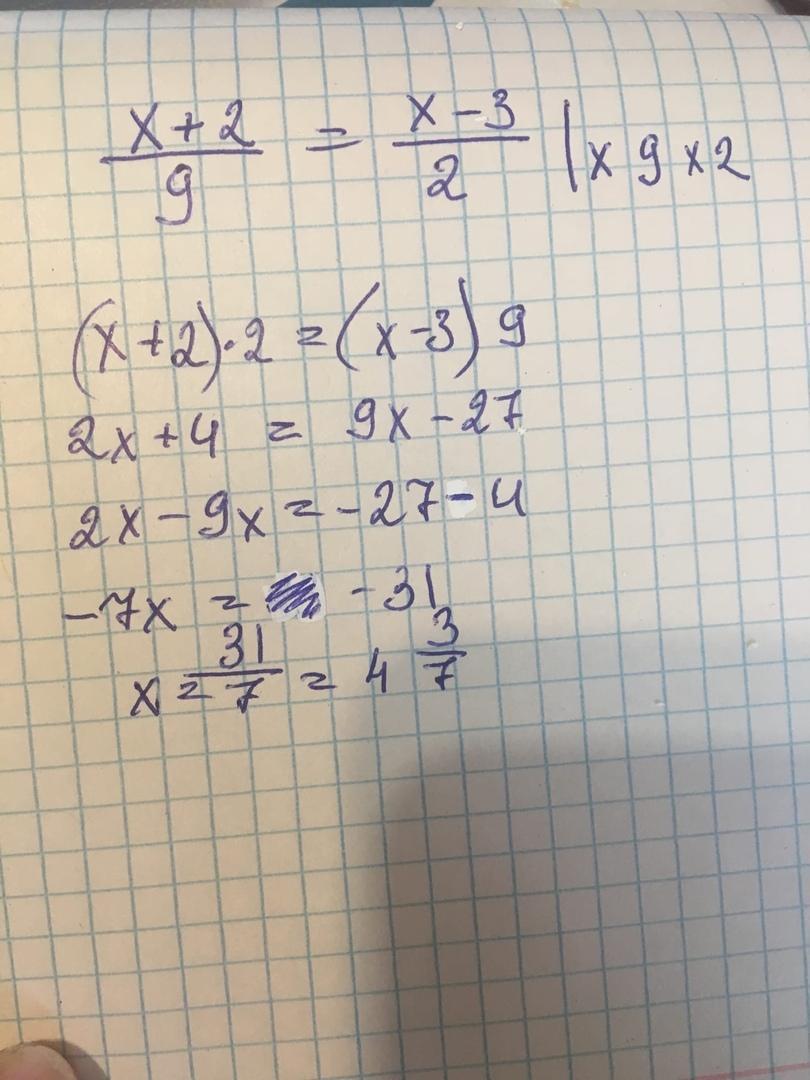 x + 2 / 9 = x - 3 / 2 | x 9 x 2
(x + 2) · 2 = (x - 3) 9
2x + 4 = 9x - 27
2x - 9x = - 27 - 4
- 7x = - 31
x = 31 / 7 = 4 3/7